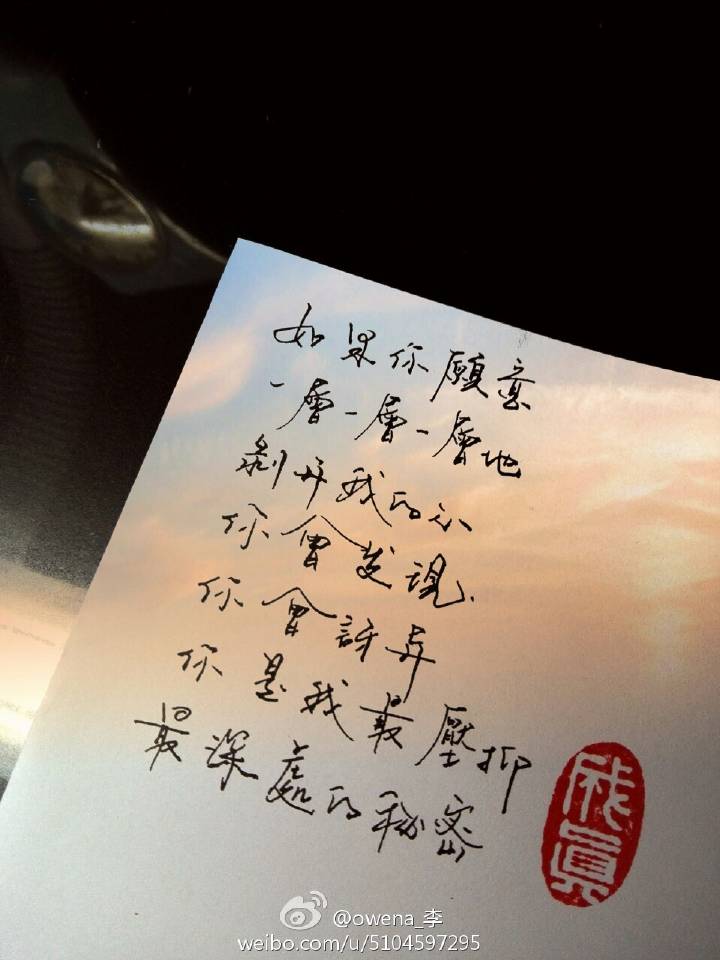 如果你願意
一層一層一層地
剝开我的心
你會发現
你會訝异
你是我最壓抑
最深處的秘密
成真
@owena_李
weibo.com/u/5104597295